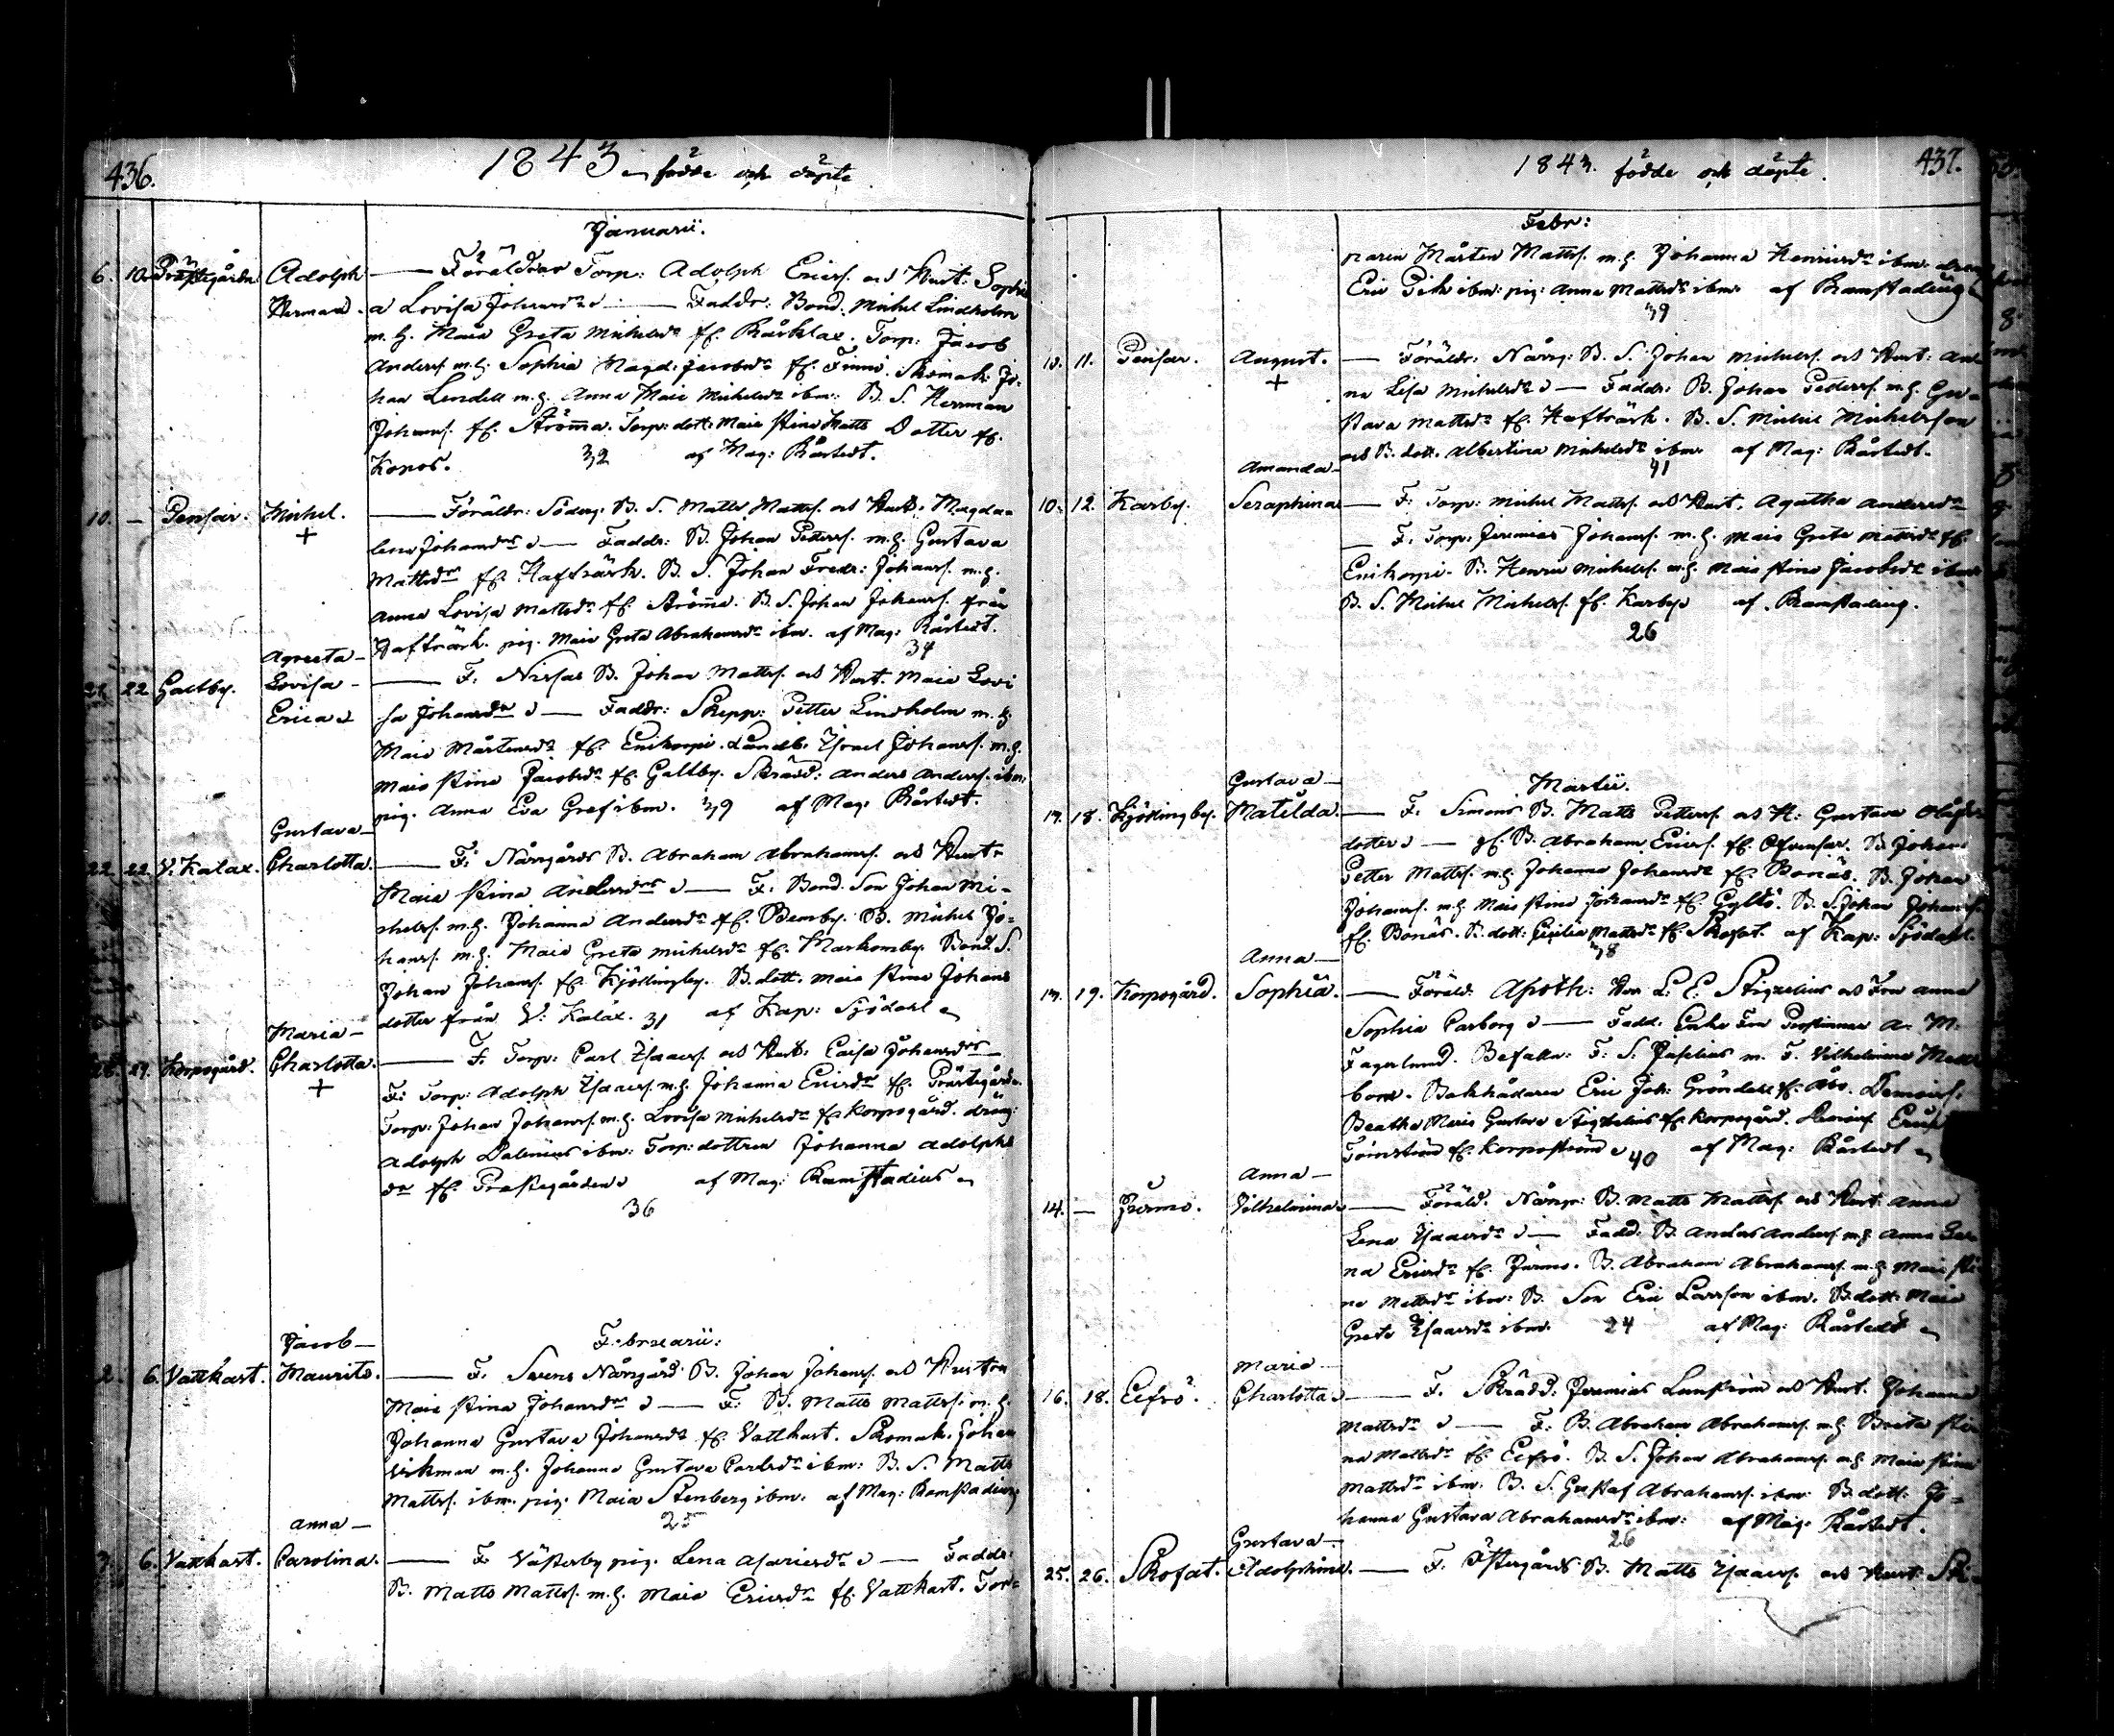 436.
1843 födde och döpte
Januarii.
6. 10. Prästegården Adolph Herman. — Föräldrar Torp: Adolph Ericss. och Hust: Sophi
a Lovisa Johansdr — Faddr. Bond. Michel Lindholm
m. h. Maia Greta Michelsdr fr. Rårklax. Torp: Jacob
Anderss. m.h. Sophia Magd: Jacobsdr fr. Finnö. Skomak: Jo-
han Lendell m.h. Anna Maie Michelsdr ibm: B. S. Herrman
Johanss. fr. Strömma. Torp: dott: Maie Stina Matts Dotter fr.
Konos. 32 af Mag: Råstedt.
10. — Pensar. Michel. + — Föräldr: Söderg: B. S. Matts Mattss. och Hust: Magda-
lena Johansdr — Faddr: B. Johan Petterss. m.h. Gustava
Mattsdr fr. Hafträrk. B. S. Johan Fredr: Johanss. m.h.
Anna Lovisa Mattsdr fr. Strömma. B. S. Johan Johanss. från
Hafträrk. pig. Maie Greta Abrahamsdr ibm. af Mag: Råstedt.
34
21. 22. Galtby. Agreeta Lovisa Erica — F. Nissas B. Johan Mattss. och Hust. Maie Lovi
sa Johansdr — Faddr: Skepp: Petter Lindholm m. h.
Maie Mårtensdr fr. Enikorpi. Landb. Israel Johanss. m.h.
Maie Stina Jacobsdr fr. Galtby. Skräd: Anders Anderss. ibm:
pig. Anna Eva Graf ibm. 39 af Mag: Råstedt.
22. 22. V. Kalax. Gustava Charlotta. — F: Nårrgårds B. Abraham Abrahamss. och Hust:
Maie Stina Andersdr — F: Bond. Son Johan Mi-
chelss. m.h. Johanna Andersdr fr. Remby. B. Michel Jo-
hanss. m.h. Maie Greta Michelsdr fr. Markomby. Bond. S.
Johan Johanss. fr. Kjöttingby. B. dott. Maie Stina Johans
dotter från V: Kalax. 31 af Kap: Sjödahl
28. 29. Korpogård. Maria Charlotta. + — F. Torp: Carl Isaacss. och Hust: Caisa Johansdr
F: Torp: Adolph Isaacss. m.h. Johanna Ericsdr fr. Prästegården.
Torp: Johan Johanss. m.h. Lovisa Michelsdr fr Korpogård. dräng:
Adolph Dalenius ibm: Torp: dottren Johanna Adolphs
dr fr. Prästegården af Mag: Ramstadius
36
Februarii:
2. 6. Vattkast. Jacob Maurits. — F. Svens Nårrgård B. Johan Johanss. och Hustrn
Maie Stina Johansdr — F: B. Matts Mattss. m.h.
Johanna Gustava Johansdr fr. Vattkast. Skomak. Johan
Vikman m.h. Johanna Gustava Carlsdr ibm: B. S. Matts
Mattss. ibm. pig. Maia Stenberg ibm. af Mag: Ramstadius
25
3. 6. Vattkast. Anna Carolina. — F. Västerby pig. Lena Asariesdr — Faddr:
B. Matts Mattss. m.h. Maia Ericsdr fr. Vattkast. Tor-
1843. födde och döpte.
437.
Febr:
paren Mårten Mattss. m.h. Johanna Henricsdr ibm. dren
Eric Pik ibm: pig: Anna Mattsdr ibm. af Ramstadius
39
10. 11. Pensar. August. + — Föräldr: Nårrg: B. S. Johan Michelss. och Hust: An
na Lisa Michelsdr — Faddr: B. Johan Pederss. m.h. Gu-
stava Mattsdr fr. Hafträrk. B. S. Michel Michelsson
och B. dott. Albertina Michelsdr ibm. af Mag: Råstedt.
41
10. 12. Karby. Amanda Seraphina — F: Torp: Michel Mattss. och Hust. Agatha Andersdr
— F: Torp: Jeremias Johanss. m.h. Maie Greta Mattsdr fr.
Enikorpi. B. Henric Michelss. m.h. Maie Stina Jacobsdr ibm
B. S. Michel Michelss. fr. Karby af Ramstadius.
26
Martii.
17. 18. Kjöttingby. Gustava Matilda. — F: Simons B. Matts Petterss. och H: Gustava Olofs
dotter — F. B. Abraham Ericss. fr. Ofvensor. B. Johan
Petter Mattss. m.h. Johanna Johansdr fr. Bonäs. B. Johan
Johanss. m.h. Maie Stina Johansdr fr. Gyltö. B. S. Johan Johanss.
fr. Bonäs. B. dott: Cecilia Mattsdr fr. Skofat. af Kap: Sjödahl.
38
13. 19. Korpogård. Anna Sophia. — Föräld: Apoth: Herr L. E. Stigzelius och Fru Anna
Sophia Carborg — Fadd: Enke Fru Prostinnan A. M.
Fagerlund. Befalln: F. S. Paselius m. F. Vilhelmina
Bokhållaren Eric Joh: Gröndell fr. Åbo. Demoisl:
Beatha Maria Gustava Stigzelius fr Korpogård. Demoisl
fr. Korpoström 40 af Mag: Råstedt
14. — Jurmo. Anna Vilhelmina — Föräld. Nårrg: B. Matts Mattss. och Hust: Anna
Lena Isaacsdr — Fadd: B. Anders Anderss m.h. Anna Le
na Ericsdr fr. Jurmo. B. Abraham Abrahamss. m.h. Maie Sti
na Mattsdr ibm: B. Son Eric Larsson ibm. B. dott: Maia
Greta Isaacsdr ibm. 24 af Mag: Råstedt
16. 18. Elfsö. Maria Charlotta — F. Skrädd: Jeremias Lanström och Hust. Johanna
Mattsdr — F: B. Abraham Abrahamss. m.h. Brita Sti
na Mattsdr fr. Elfsö. B. S. Johan Abrahamss. m.h. Maie Stina
Mattsdr ibm: B. S. Gustaf Abrahamss. ibm: B. dott: Jo-
hanna Gustava Abrahamsdr ibm: af Mag. Råstedt.
26
25. 26. Skofat. Gustava Adolphina. — F. Östergårds B. Matts Isaacss. och Hust. Sti-